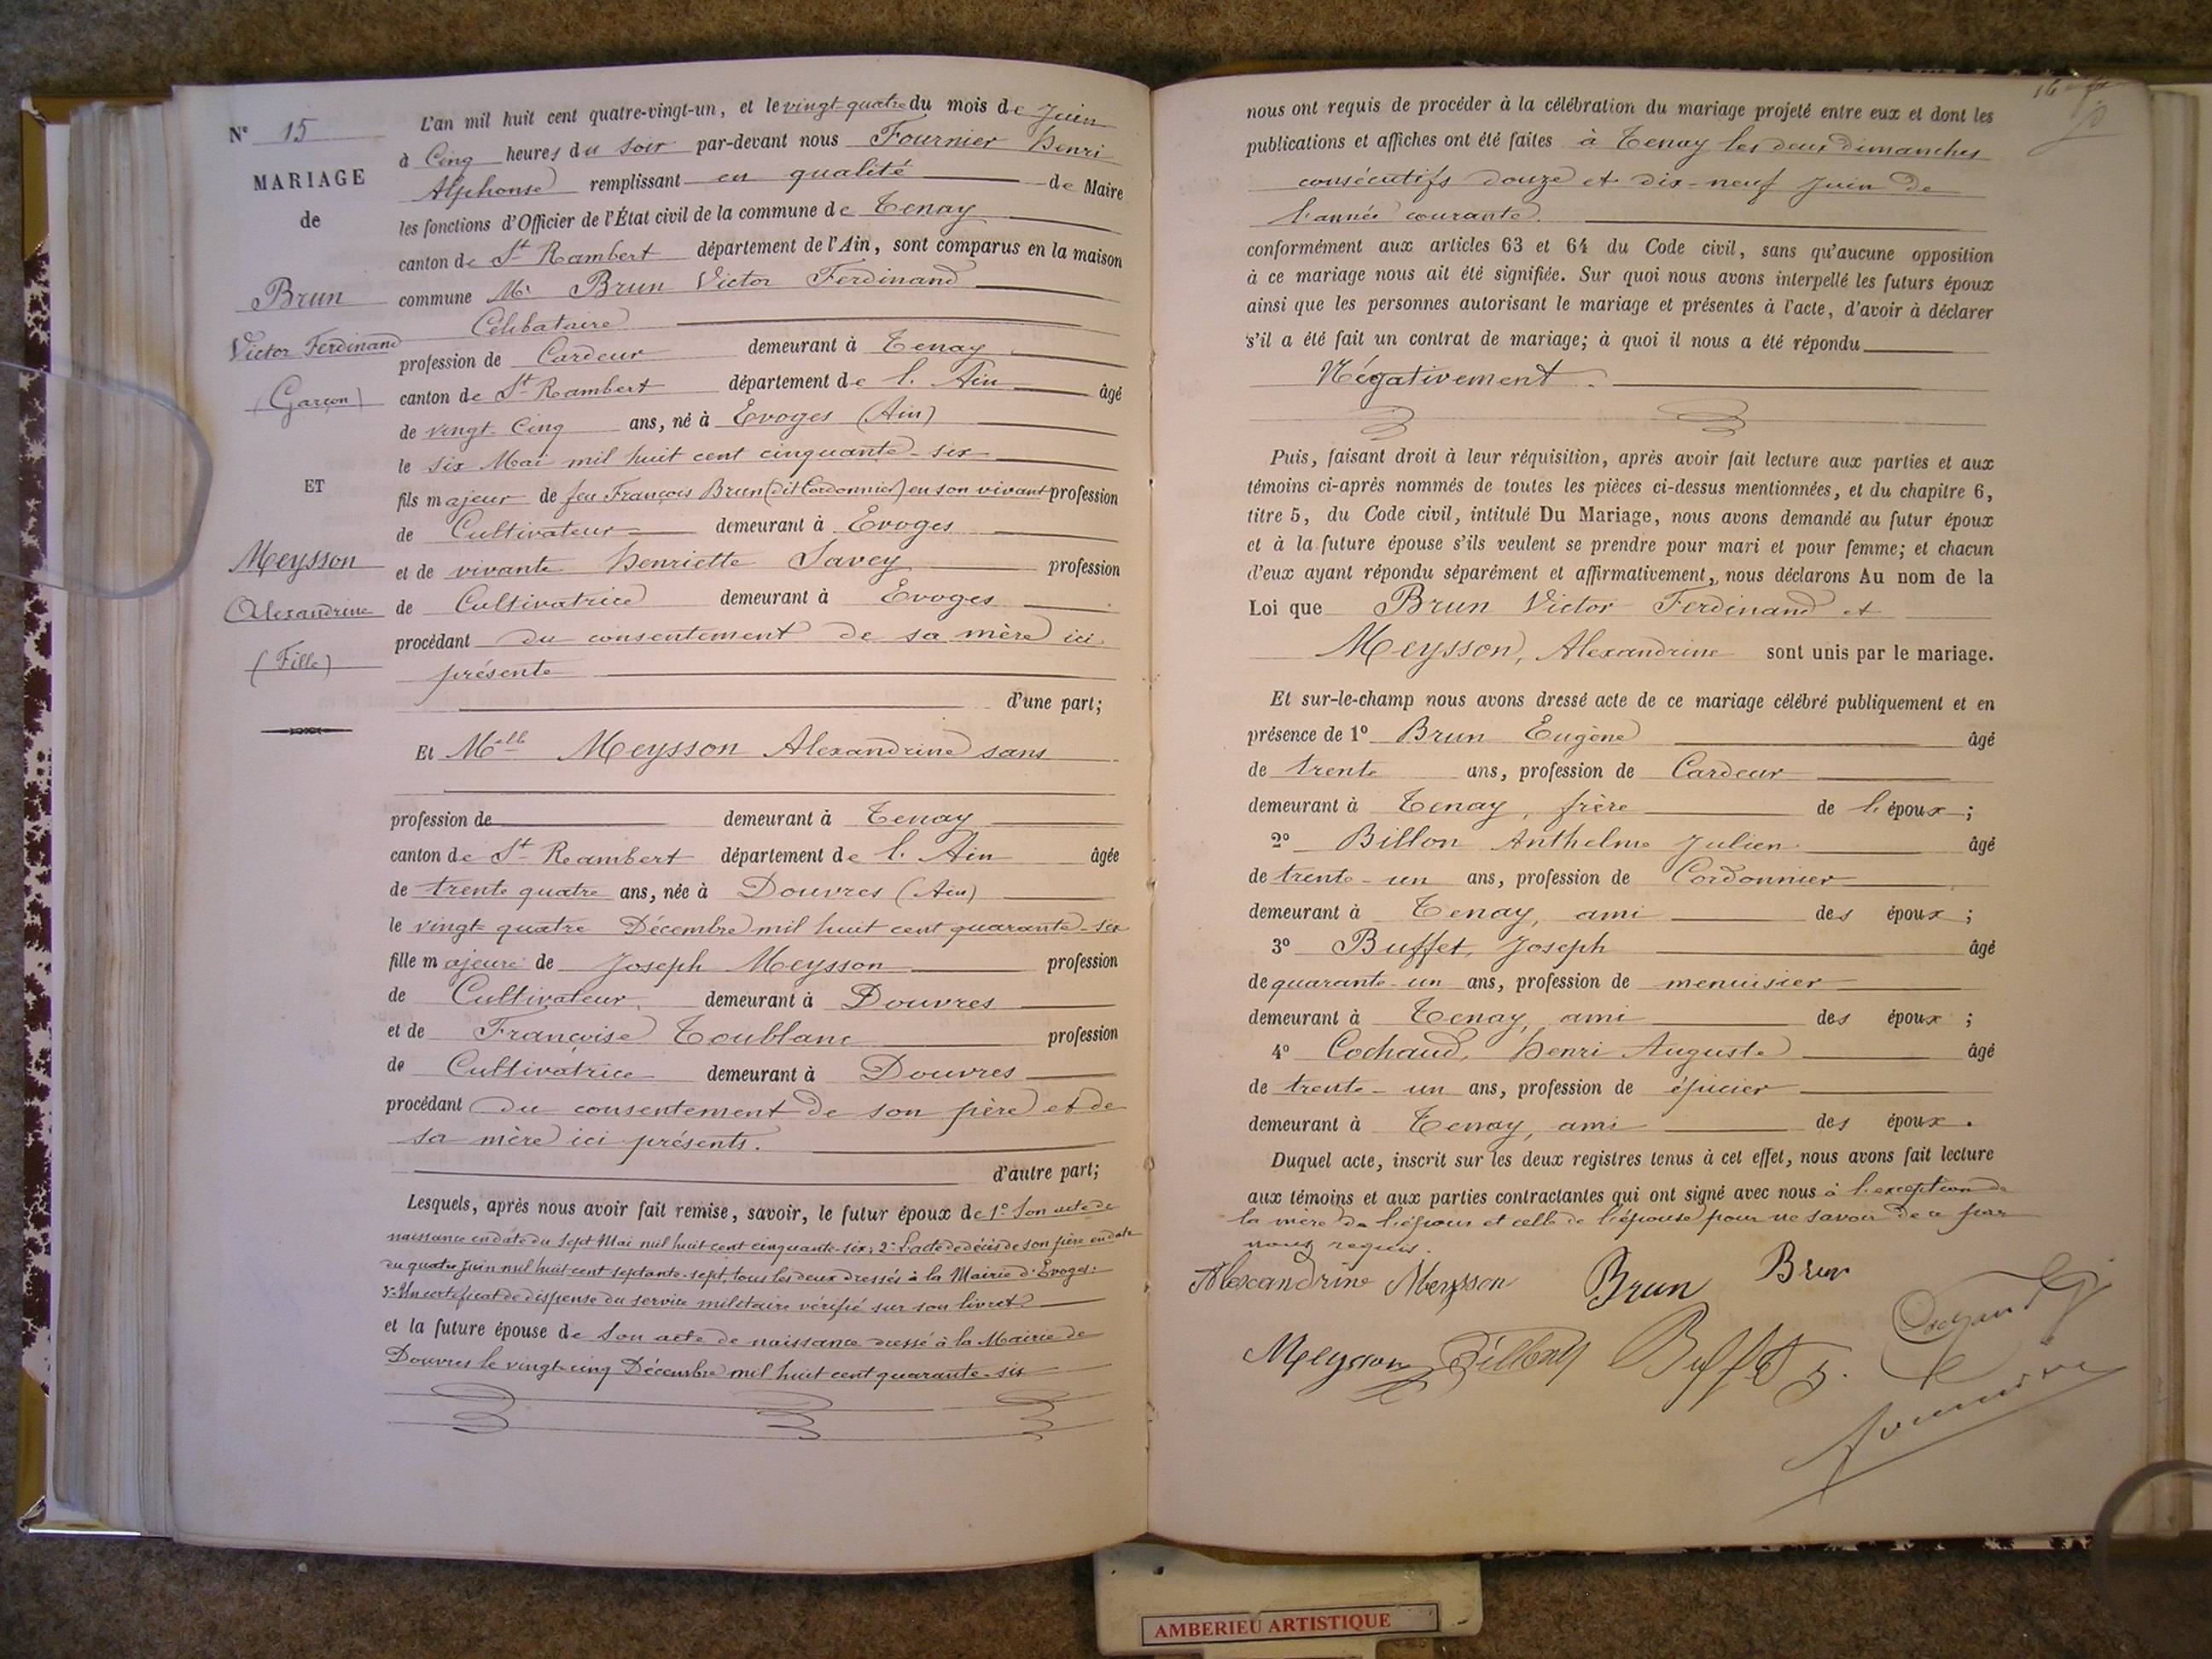 N° 15
MARIAGE
de
Brun
Victor Ferdinand
(Garçon)
ET
Meysson
Alexandrine
(Fille)
L'an mil huit cent quatre-vingt-un, et le vingt-quatre du mois de Juin
à Cinq heures du soir par-devant nous Fournier Henri
Alphonse remplissant en qualité de Maire
les fonctions d'Officier de l'État civil de la commune de Tenay
canton de St Rambert département de l'Ain, sont comparus en la maison
commune Mr Brun Victor Ferdinand
Célibataire
profession de Cardeur demeurant à Tenay
canton de St Rambert département de l'Ain âgé
de vingt-Cinq ans, né à Evoges (Ain)
le six Mai mil huit cent cinquante-six
fils majeur de feu François Brun (dit Cordonnier) en son vivant profession
de Cultivateur demeurant à Evoges
et de vivante Henriette Savey profession
de Cultivatrice demeurant à Evoges
procédant du consentement de sa mère ici
présente
d'une part;
Et Melle Meysson Alexandrine sans
profession de demeurant à Tenay
canton de St Rambert département de l'Ain âgée
de trente quatre ans, née à Douvres (Ain)
le vingt-quatre Décembre mil huit cent quarante-six
fille majeure de Joseph Meysson profession
de Cultivateur demeurant à Douvres
et de Françoise Toublanc profession
de Cultivatrice demeurant à Douvres
procédant du consentement de son père et de
sa mère ici présents.
d'autre part;
Lesquels, après nous avoir fait remise, savoir, le futur époux de 1° Son acte de
naissance en date du sept Mai mil huit cent cinquante-six; 2° L'acte de décès de son père en date
du quatre Juin mil huit cent septante-sept, tous les deux dressés à la Mairie d'Evoges:
3° Un certificat de dispense du service militaire vérifié sur son livret
et la future épouse de Son acte de naissance dressé à la Mairie de
Douvres le vingt-cinq Décembre mil huit cent quarante-six
nous ont requis de procéder à la célébration du mariage projeté entre eux et dont les
publications et affiches ont été faites à Tenay les deux dimanches
consécutifs douze et dix-neuf Juin de
l'année courante.
conformément aux articles 63 et 64 du Code civil, sans qu'aucune opposition
à ce mariage nous ait été signifiée. Sur quoi nous avons interpellé les futurs époux
ainsi que les personnes autorisant le mariage et présentes à l'acte, d'avoir à déclarer
s'il a été fait un contrat de mariage; à quoi il nous a été répondu
Négativement.
Puis, faisant droit à leur réquisition, après avoir fait lecture aux parties et aux
témoins ci-après nommés de toutes les pièces ci-dessus mentionnées, et du chapitre 6,
titre 5, du Code civil, intitulé Du Mariage, nous avons demandé au futur époux
et à la future épouse s'ils veulent se prendre pour mari et pour femme; et chacun
d'eux ayant répondu séparément et affirmativement, nous déclarons Au nom de la
Loi que Brun Victor Ferdinand et
Meysson, Alexandrine sont unis par le mariage.
Et sur-le-champ nous avons dressé acte de ce mariage célébré publiquement et en
présence de 1° Brun Eugène âgé
de trente ans, profession de Cardeur
demeurant à Tenay, frère de l'époux;
2° Billon Anthelme Julien âgé
de trente-un ans, profession de Cordonnier
demeurant à Tenay, ami des époux;
3° Buffet, Joseph âgé
de quarante-un ans, profession de menuisier
demeurant à Tenay, ami des époux;
4° Cochaud, Henri Auguste âgé
de trente-un ans, profession de épicier
demeurant à Tenay, ami des époux.
Duquel acte, inscrit sur les deux registres tenus à cet effet, nous avons fait lecture
aux témoins et aux parties contractantes qui ont signé avec nous à l'exception de
la mère de l'époux et celle de l'épouse pour ne savoir de ce par
nous requis.
Alexandrine Meysson Brun Brun
Meysson Billon Buffet J. Cochaud
Fournier
AMBERIEU ARTISTIQUE